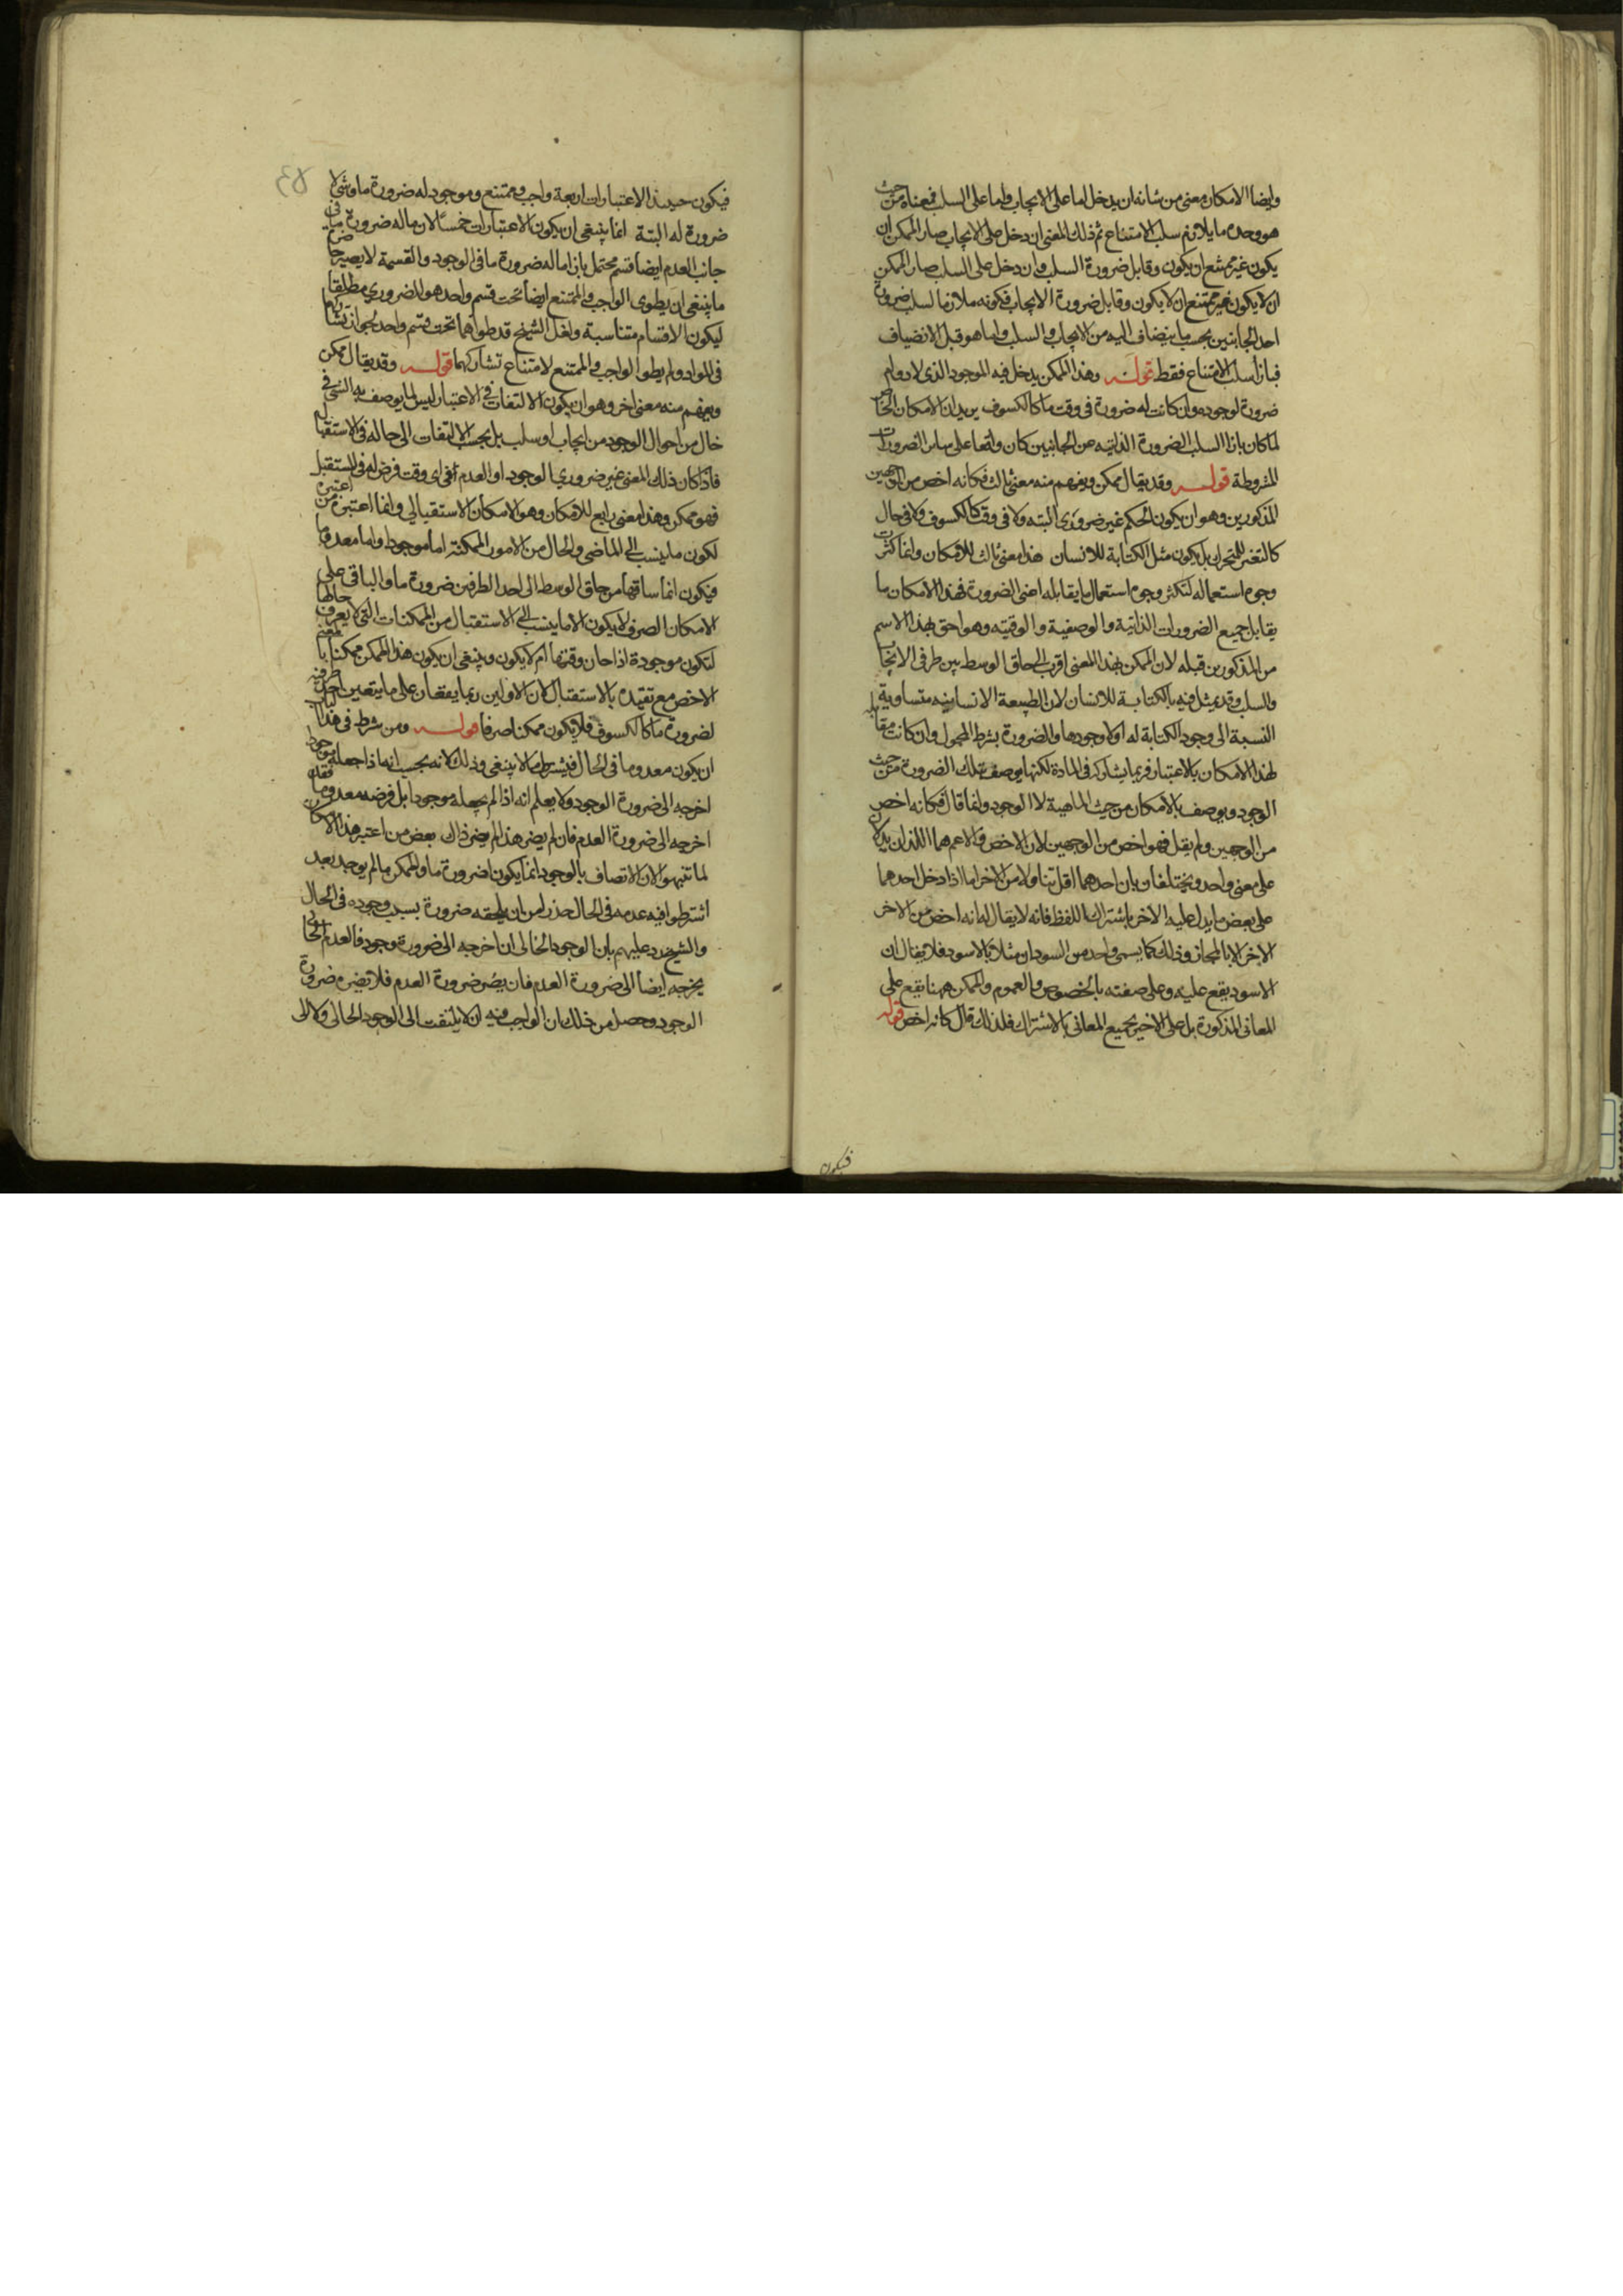 وايضا الامكان معنى من شانه ان يدخل اما على الايجاب واما على السلب فمعناه من حيث
هو وحده ما يلازم سلب الامتناع ثم ذلك المعنى ان دخل على الايجاب صار الممكن ان
يكون غير ممتنع ان يكون وقابل ضرورة السلب وان دخل على السلب صار الممكن
ان لا يكون غير ممتنع ان لا يكون وقابل ضرورة الايجاب فكونه ملازما لسلب ضرورة
احد الجانبين بحسب ما ينضاف اليه من الايجاب والسلب واما هو قبل الانضياف
فبازاء سلب الامتناع فقط قوله وهذا الممكن يدخل فيه الموجود الذى لا دوام
ضرورة لوجوده وان كانت له ضرورة فى وقت ما كالكسوف يريد ان الامكان الخاص
لما كان بازاء السلب الضرورة الذاتيه عن الجانبين كان واقعا على ساير الضرورات
المشروطة قوله وقد يقال ممكن ويفهم منه معنى ثالث فكانه اخص من الوجهين
المذكورين وهو ان يكون الحكم غير ضرورى البته ولا فى وقت كالكسوف ولا فى حال
كالتغير للمتحرك بل يكون مثل الكتابة للانسان هذا معنى ثالث للامكان وانما كثرت
وجوه استعماله لتكثر وجوه استعمال ما يقابله اعنى الضرورة فهذا الامكان ما
يقابل جميع الضرورات الذاتية والوصفية والوقتيه وهو احق بهذا الاسم
من المذكورين قبله لان الممكن بهذا المعنى اقرب الى حاق الوسط بين طرفى الايجاب
والسلب وقد يمثل فيه بالكتابة للانسان لان الطبيعة الانسانيه متساوية
النسبة الى وجود الكتابة له او لا وجودها والضرورة بشرط المحمول وان كانت مقابله
لهذا الامكان بالاعتبار فربما يشاركه فى المادة لكنها يوصف بتلك الضرورة من حيث
الوجود ويوصف بالامكان من حيث الماهية لا الوجود وانما قال فكانه اخص
من الوجهين ولم يقل فهو اخص من الوجهين لان الاخص والاعم هما اللذان يدلان
على معنى واحد ويختلفان بان احدهما اقل تناولا من الاخر اما اذا دخل احدهما
على بعض ما يدل عليه الاخر باشتراك اللفظ فانه لا يقال له انه اخص من الاخر
الاخر الا بالمجاز وذلك كما يسمى واحد من السودان مثلا بالاسود فلا يقال ان
الاسود يقع عليه وعلى صفته بالخصوص والعموم والممكن ههنا يقع على
المعانى المذكورة بل على الاخير بجميع المعانى بالاشتراك فلذلك قال كانه اخص قوله
فيكون
فيكون حينئذ الاعتبارات اربعة واجب وممتنع وموجود له ضرورة ما وشى لا
ضرورة له البتة انما ينبغى ان يكون الاعتبارات خمسا لان ما له ضرورة ما فى
جانب العدم ايضا قسم محتمل بازاء ما له ضرورة ما فى الوجود والقسمة لا يصير حاضرة
ما ينبغى ان يطوى الواجب والممتنع ايضا تحت قسم واحد هو الضرورى مطلقا
ليكون الاقسام متناسبة ولعل الشيخ قد طواهما تحت قسم واحد لجواز تشاركهما
فى المواد ولم يطو الواجب والممتنع لامتناع تشاركهما قوله وقد يقال ممكن
ويفهم منه معنى اخر وهو ان يكون الالتفات فى الاعتبار ليس لما يوصف به الشى فى
حال من احوال الوجود من ايجاب او سلب بل بحسب الالتفات الى حاله فى الاستقبال
فاذا كان ذلك المعنى غير ضرورى الوجود او العدم فى اى وقت فرض له فى المستقبل
فهو ممكن وهذا معنى رابع للامكان وهو الامكان الاستقبالى وانما اعتبره من اعتبره
لكون ما ينسب الى الماضى والحال من الامور الممكنة اما موجودا واما معدوما
فيكون انما ساقها من حاق الوسط الى احد الطرفين ضرورة ما والباقى على
الامكان الصرف لا يكون الا ما ينسب الى الاستقبال من الممكنات التى لا يعرف حالها
لتكون موجودة اذا حان وقتها ام لا يكون وينبغى ان يكون هذا الممكن ممكنا بالمعنى
الاخص مع تقيده بالاستقبال لان الاولين ربما يقعان على ما يتعين احد طرفيه
لضرورة ما كالكسوف فلا يكون ممكنا صرفا قوله ومن شرط فى هذا
ان يكون معدوما فى الحال فيشترط ما لا ينبغى وذلك لانه يحسب انه اذا جعله موجودا
اخرجه الى ضرورة الوجود ولا يعلم انه اذا لم يجعله موجودا بل فرضه معدوما فقد
اخرجه الى ضرورة العدم فان لم يضر هذا لم يضر ذاك بعض من اعتبر هذا الامكان
لما تنبهوا لان الاتصاف بالوجود انما يكون لضرورة ما والممكن ما لم يوجد بعد
اشترطوا فيه عدمه فى الحال حذرا من ان يلحقه ضرورة بسبب وجوده فى الحال
والشيخ رد عليهم بان الوجود الحالى ان اخرجه الى ضرورة وجود فالعدم الحالى
يخرجه ايضا الى ضرورة العدم فان يضر ضرورة العدم فلا تضره ضرورة
الوجود وحصل من ذلك ان الواجب فيه ان لا يلتفت الى الوجود الحالى ولا الى